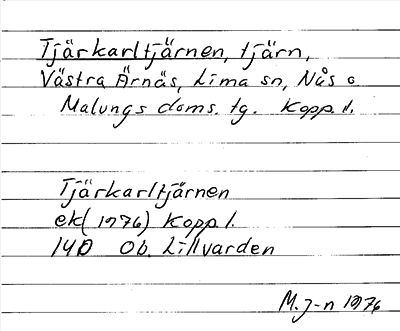 Tjärkarltjärnen, tjärn,
Västra Ärnäs, Lima sn, Nås o
Malungs doms. tg. Kopp. l.
Tjärkarltjärnen
ek (1976) Kopp l.
14D Ob. Lillvarden
M. J-n 1976